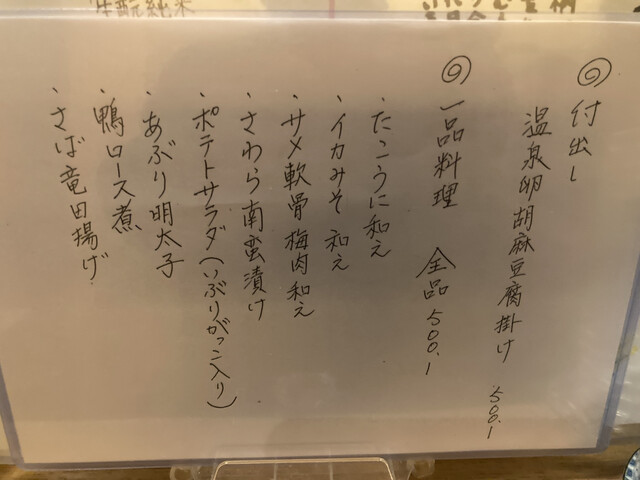 ◎付出し
温泉卵胡麻豆腐掛け 500.-
◎一品料理 全品500.-
・たこうに和え
・イカみそ和え
・サメ軟骨梅肉和え
・さわら南蛮漬け
・ポテトサラダ(いぶりがっこ入り)
・あぶり明太子
・鴨ロース煮
・さば竜田揚げ